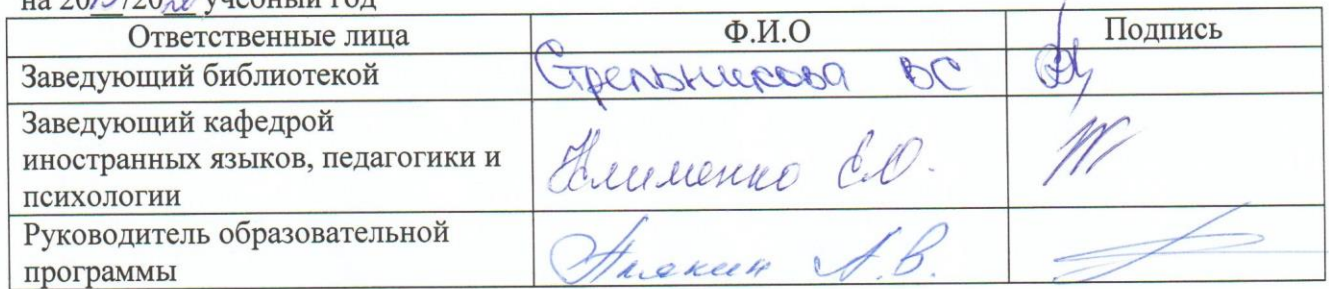 на 2019/2020 учебный год
Ответственные лица Ф.И.О Подпись
Заведующий библиотекой Стрельникова ВС
Заведующий кафедрой
иностранных языков, педагогики и
психологии Клименко Е.О.
Руководитель образовательной
программы Плякин А.В.